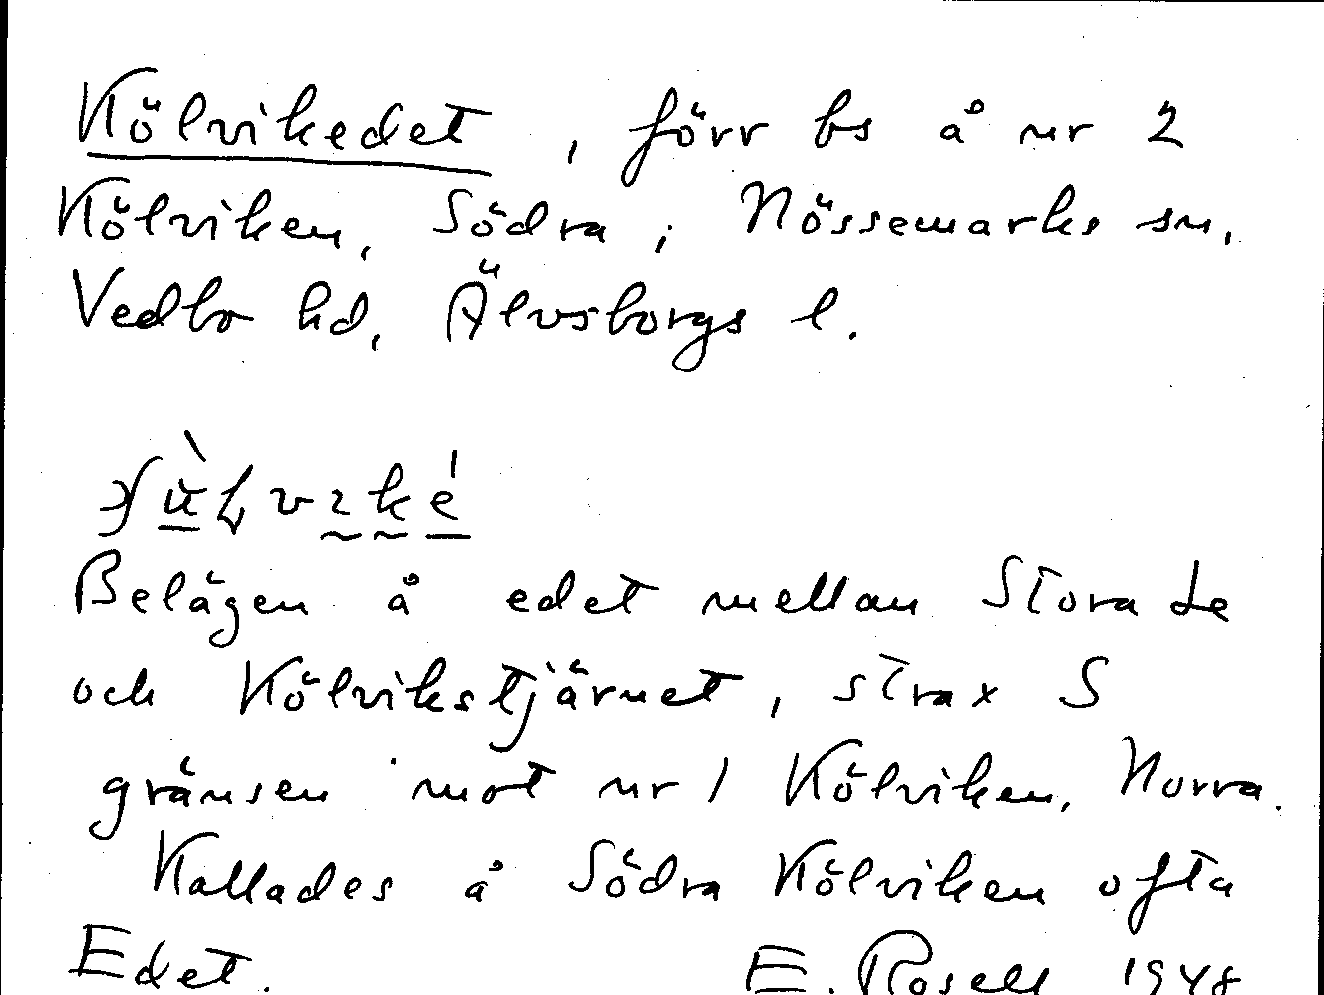 Kölvikedet, förr bs å nr 2
Kölviken, Södra, Nössemarks sn,
Vedbo hd, Älvsborgs l.
Belägen å edet mellan Stora Le
och Kölvikstjärnet, strax S
gränsen mot nr 1 Kölviken, Norra.
Kallades å Södra Kölviken ofta
Edet. E. Rosell 1948